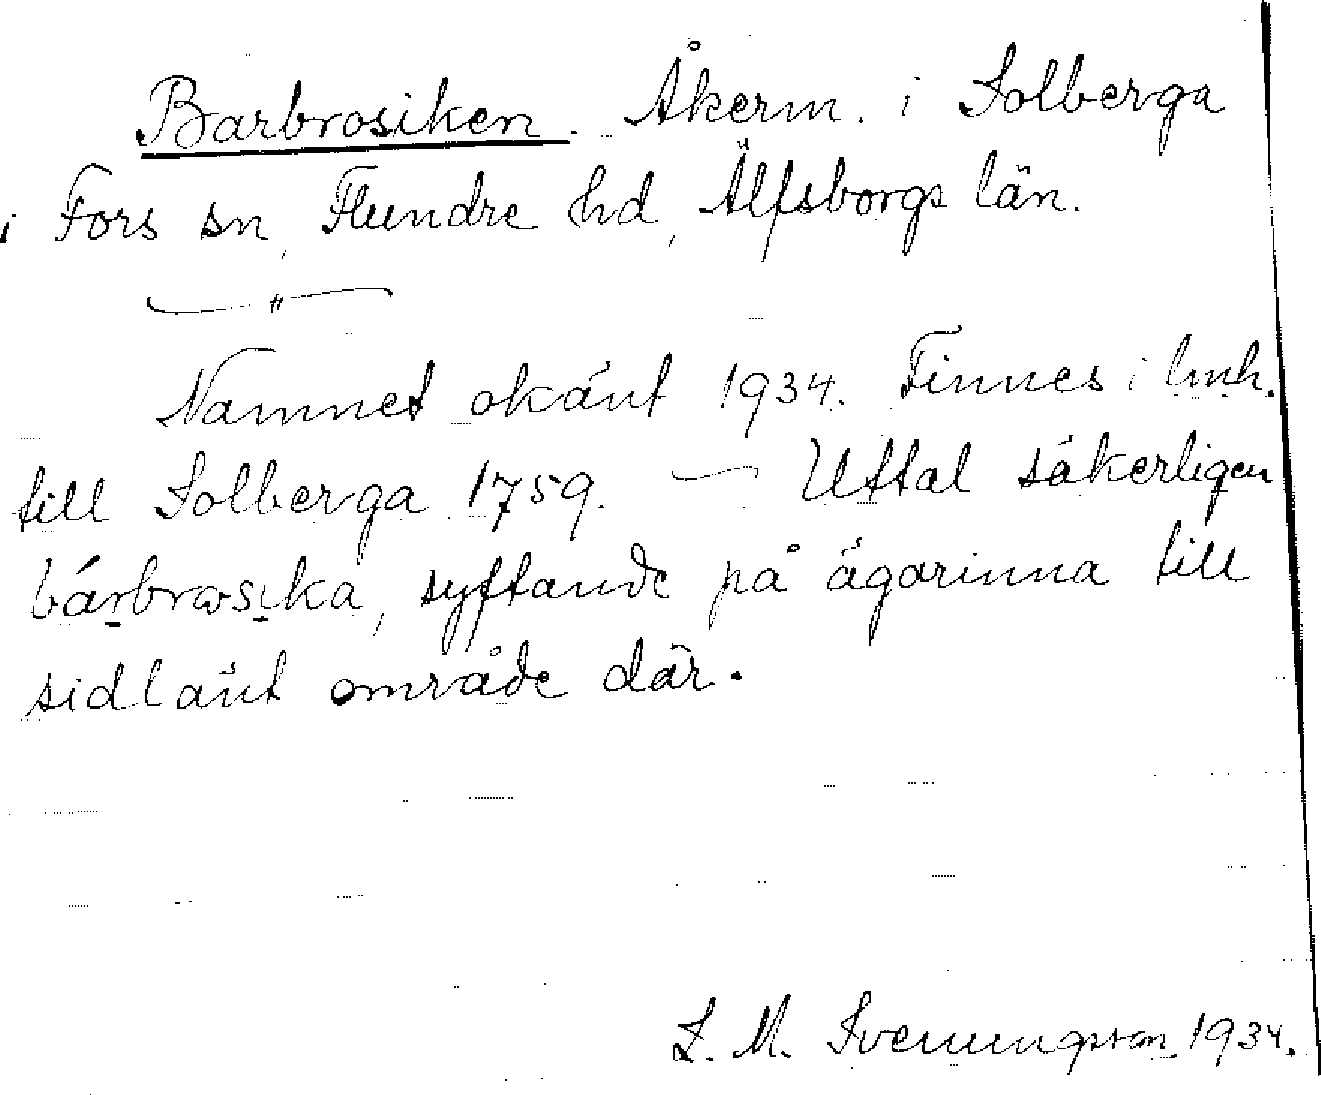 Barbrosiken. Åkerm. i Solberga
i Fors sn, Flundre hd, Älfsborgs län.
— " —
Namnet okänt 1934. Finnes i lmh.
till Solberga 1759. — Uttal säkerligen
bárbrosika, syftande på ägarinna till
sidlänt område där.
S. M. Svenungsson 1934.